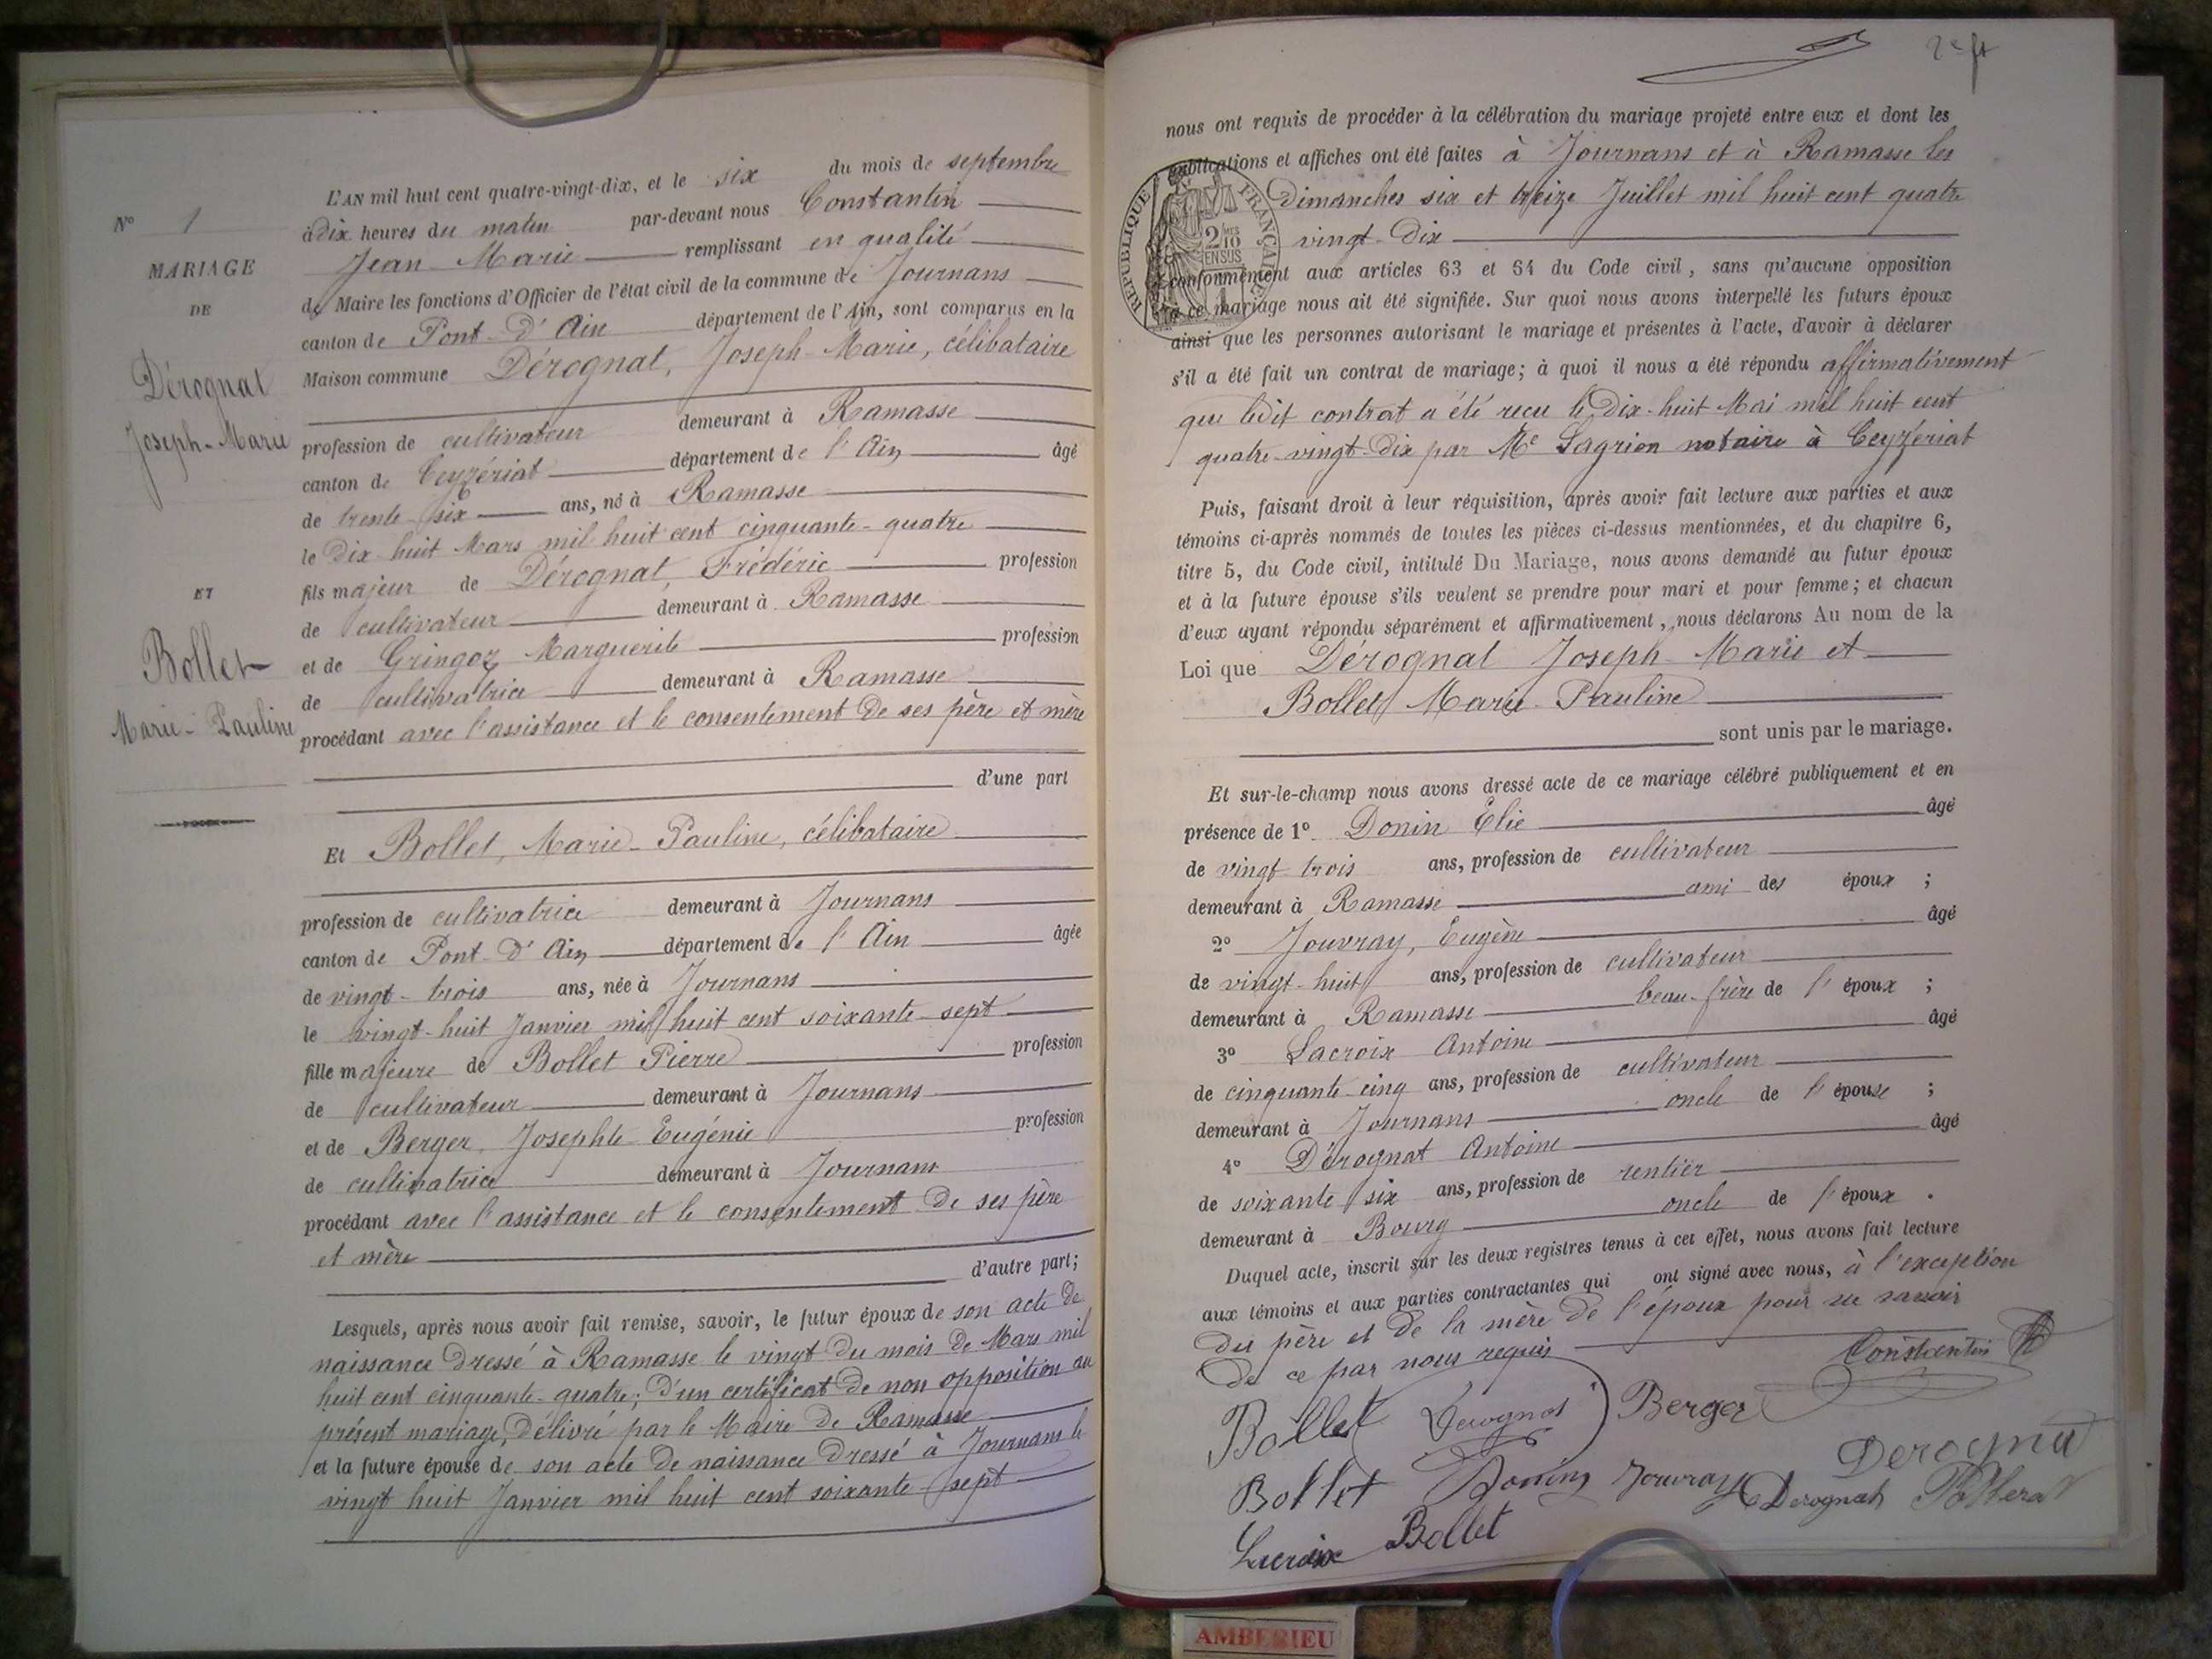 N° 1
MARIAGE
DE
Dérognat
Joseph-Marie
ET
Bollet
Marie-Pauline
L'AN mil huit cent quatre-vingt-dix, et le six du mois de septembre
à dix heures du matin par-devant nous Constantin
Jean-Marie remplissant en qualité
de Maire les fonctions d'Officier de l'état civil de la commune de Journans
canton de Pont-d'Ain département de l'Ain, sont comparus en la
Maison commune Dérognat, Joseph-Marie, célibataire
profession de cultivateur demeurant à Ramasse
canton de Ceyzériat département de l'Ain âgé
de trente-six ans, né à Ramasse
le dix-huit Mars mil huit cent cinquante-quatre
fils majeur de Dérognat, Frédéric profession
de cultivateur demeurant à Ramasse
et de Gringoz Marguerite profession
de cultivatrice demeurant à Ramasse
procédant avec l'assistance et le consentement de ses père et mère
d'une part
Et Bollet, Marie-Pauline, célibataire
profession de cultivatrice demeurant à Journans
canton de Pont-d'Ain département de l'Ain âgée
de vingt-trois ans, née à Journans
le vingt-huit Janvier mil huit cent soixante-sept
fille majeure de Bollet Pierre profession
de cultivateur demeurant à Journans
et de Berger, Josephte Eugénie profession
de cultivatrice demeurant à Journans
procédant avec l'assistance et le consentement de ses père
et mère
d'autre part;
Lesquels, après nous avoir fait remise, savoir, le futur époux de son acte de
naissance dressé à Ramasse le vingt du mois de Mars mil
huit cent cinquante-quatre; d'un certificat de non opposition au
présent mariage, délivré par le Maire de Ramasse
et la future épouse de son acte de naissance dressé à Journans le
vingt huit Janvier mil huit cent soixante-sept
2e ft
nous ont requis de procéder à la célébration du mariage projeté entre eux et dont les
publications et affiches ont été faites à Journans et à Ramasse les
dimanches six et treize Juillet mil huit cent quatre
vingt-dix
RÉPUBLIQUE FRANÇAISE
2/10 EN SUS
conformément aux articles 63 et 64 du Code civil, sans qu'aucune opposition
à ce mariage nous ait été signifiée. Sur quoi nous avons interpellé les futurs époux
ainsi que les personnes autorisant le mariage et présentes à l'acte, d'avoir à déclarer
s'il a été fait un contrat de mariage; à quoi il nous a été répondu affirmativement
que ledit contrat a été reçu le dix-huit Mai mil huit cent
quatre-vingt-dix par Me Lagrion notaire à Ceyzériat
Puis, faisant droit à leur réquisition, après avoir fait lecture aux parties et aux
témoins ci-après nommés de toutes les pièces ci-dessus mentionnées, et du chapitre 6,
titre 5, du Code civil, intitulé Du Mariage, nous avons demandé au futur époux
et à la future épouse s'ils veulent se prendre pour mari et pour femme; et chacun
d'eux ayant répondu séparément et affirmativement, nous déclarons Au nom de la
Loi que Dérognat Joseph-Marie et
Bollet Marie-Pauline
sont unis par le mariage.
Et sur-le-champ nous avons dressé acte de ce mariage célébré publiquement et en
présence de 1° Donin Élie âgé
de vingt-trois ans, profession de cultivateur
demeurant à Ramasse ami des époux ;
2° Jouvray, Eugène âgé
de vingt-huit ans, profession de cultivateur
demeurant à Ramasse beau-frère de l'époux ;
3° Lacroix Antoine âgé
de cinquante-cinq ans, profession de cultivateur
demeurant à Journans oncle de l'épouse ;
4° Dérognat Antoine âgé
de soixante six ans, profession de rentier
demeurant à Bourg oncle de l'époux .
Duquel acte, inscrit sur les deux registres tenus à cet effet, nous avons fait lecture
aux témoins et aux parties contractantes qui ont signé avec nous, à l'exception
du père et de la mère de l'époux pour ne savoir
de ce par nous requis
Constantin
Bollet Derognat Berger
Derognat
Bollet Donin Jouvray Derognat
Lacroix Bollet
AMBERIEU